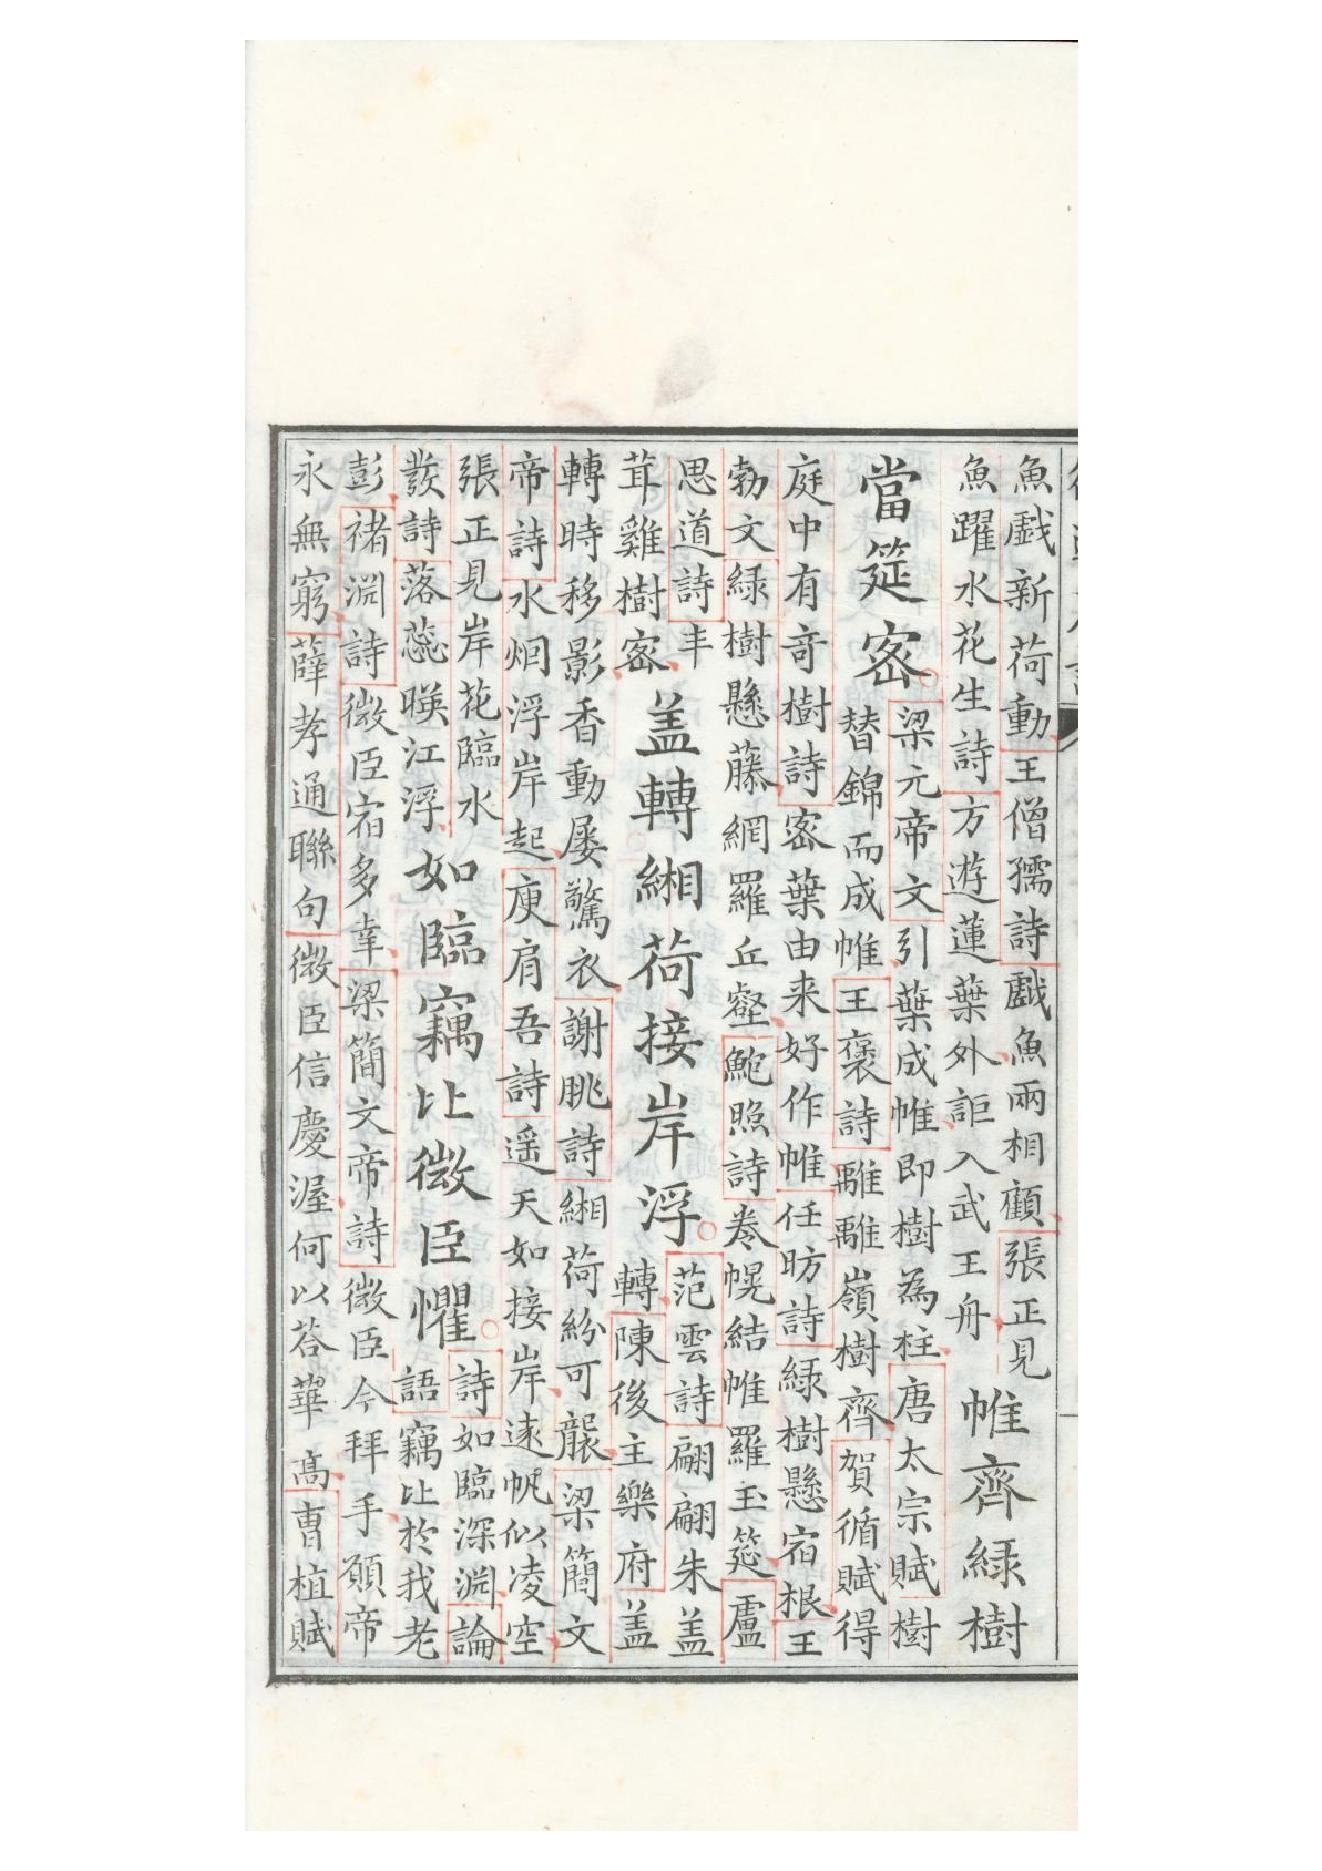 魚戱新荷動王僧孺詩戱魚兩相顧張正見
魚躍水花生詩方遊蓮葉外詎入武王舟
帷齊綠樹
當筵密
梁元帝文引葉成帷即樹為柱唐太宗賦樹
替錦而成帷王褒詩離離嶺樹齊賀循賦得
庭中有竒樹詩密葉由来好作帷任昉詩綠樹懸宿根王
勃文綠樹懸藤網羅丘壑鮑照詩卷幌結帷羅玉筵盧
思道詩丰
茸雞樹密
盖轉緗荷接岸浮
范雲詩翩翩朱盖
轉陳後主樂府盖
轉時移影香動屡驚衣謝朓詩緗荷紛可襲梁簡文
帝詩水烟浮岸起庾肩吾詩遥天如接岸逺帆似凌空
張正見岸花臨水
發詩落蕊暎江浮
如臨竊比微臣懼
詩如臨深淵論
語竊比於我老
彭禇淵詩微臣宿多幸梁簡文帝詩微臣今拜手願帝
永無窮薛孝通聯句微臣信慶渥何以荅華髙曹植賦